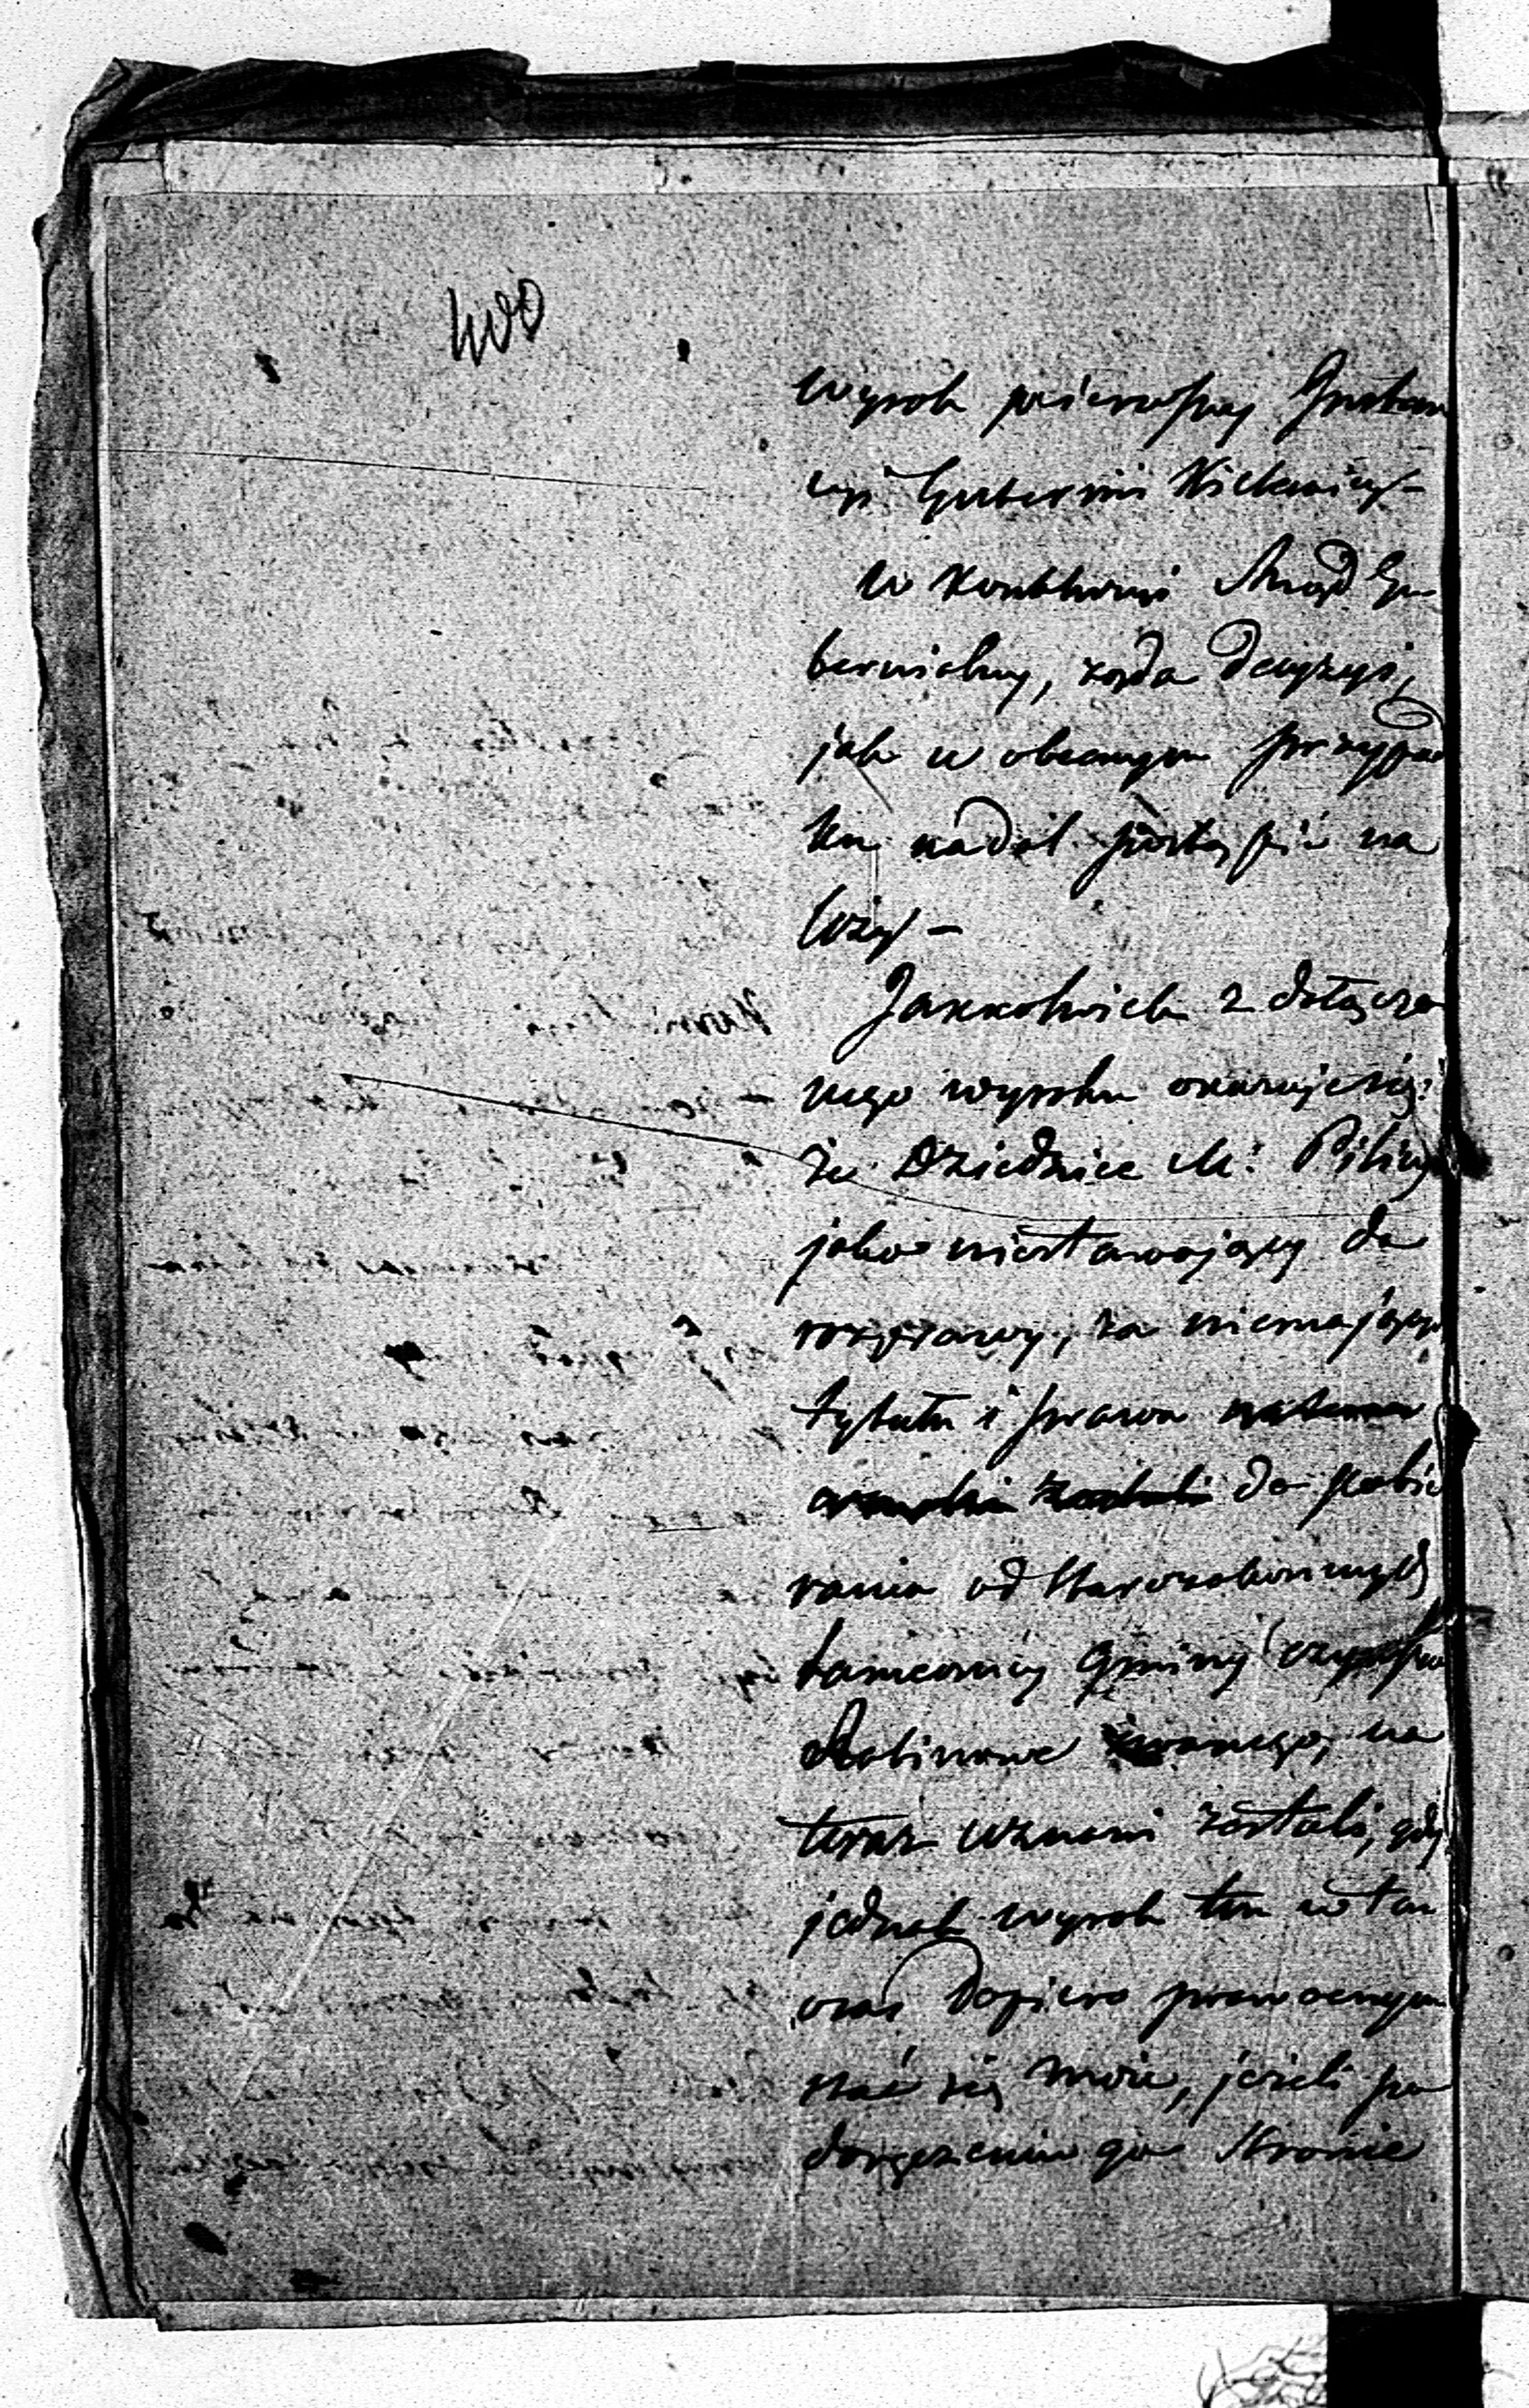 400
wyrok pierwszej Instan
cyi Gubernii Kieleckiey –
W konkluzyi Rząd Gu
bernialny, żąda decyzyi,
jak w obecnym przypad
ku nadal postąpić na
leży –
Jakkolwiek z dołączo
nego wyroku okazuje się:
że Dziedzice M: Pilicy
jako niestawający do
rozprawy, za niemający
tytułu i prawa
do pobie
rania od Starozakonnych
tamecznej Gminy czynszu
Rabinowe zwanego, na
teraz uznani zostali, gdy
jednak wyrok ten w ten
czas dopiero prawocnym
stać się może, jeżeli po
doręczeniu go Stronie